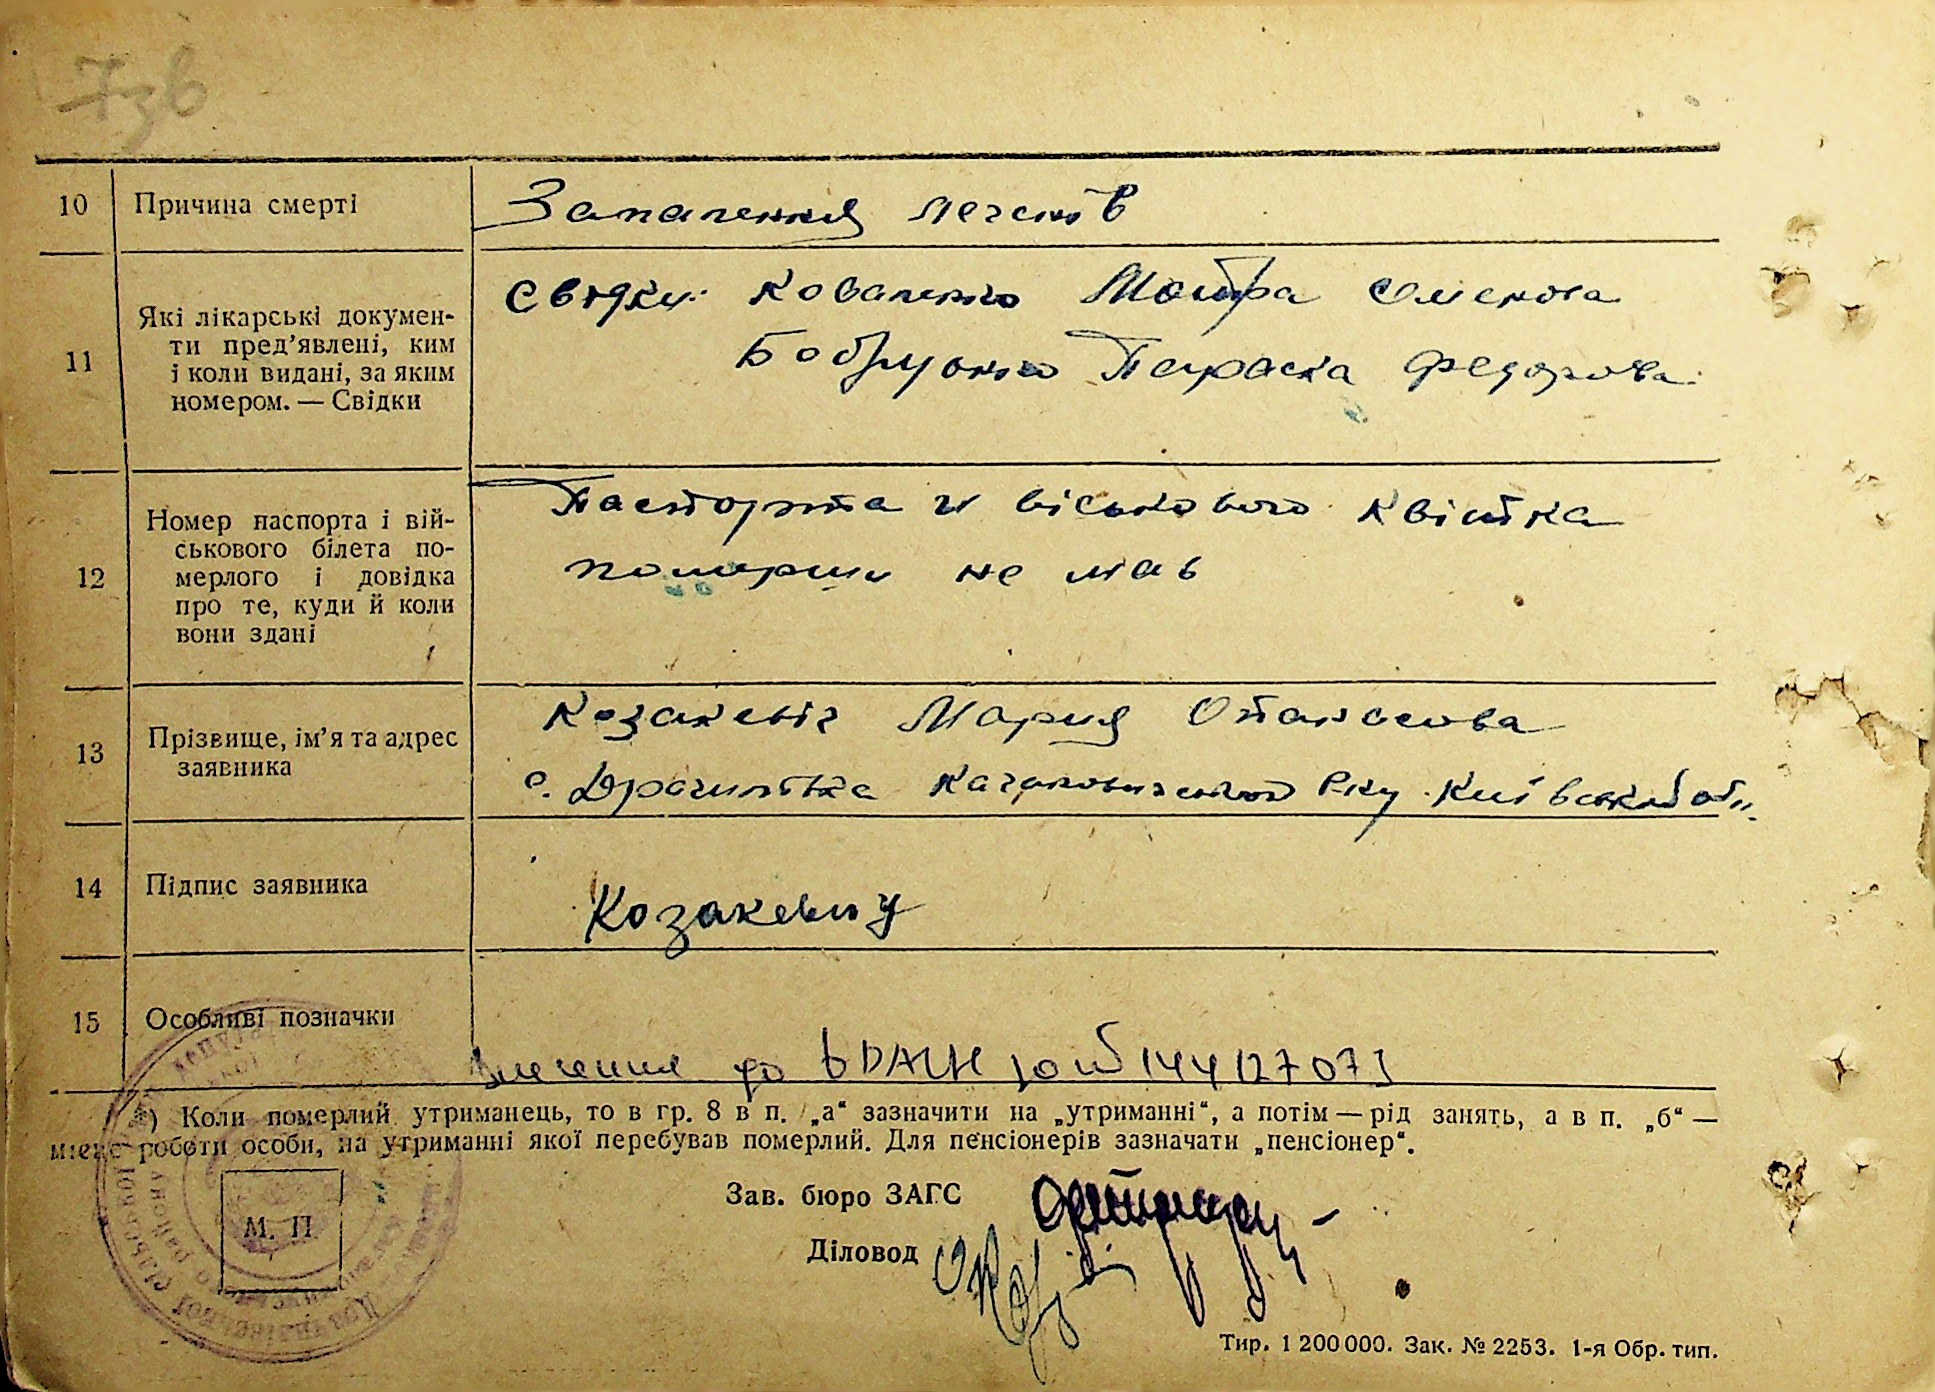 7зв
10 Причина смерті Запалення легенів
11 Які лікарські докумен-
ти пред’явлені, ким
і коли видані, за яким
номером. — Свідки
Свідки: Коваленко Мотра Семенова
Параска Федорова
12 Номер паспорта і вій-
ськового білета по-
мерлого і довідка
про те, куди й коли
вони здані
Паспорта и військового квітка
помарши не мав
13 Прізвище, ім’я та адрес
заявника
Козакевіч Мария Опанасова
с. р-ну Київської обл.
14 Підпис заявника Козакевич
15 Особливі позначки
до 144127073
*) Коли померлий утриманець, то в гр. 8 в п. „а“ зазначити на „утриманні“, а потім — рід занять, а в п. „б“ —
місце роботи особи, на утриманні якої перебував померлий. Для пенсіонерів зазначати „пенсіонер“.
М. П
Зав. бюро ЗАГС
Діловод
Тир. 1 200 000. Зак. № 2253. 1-я Обр. тип.